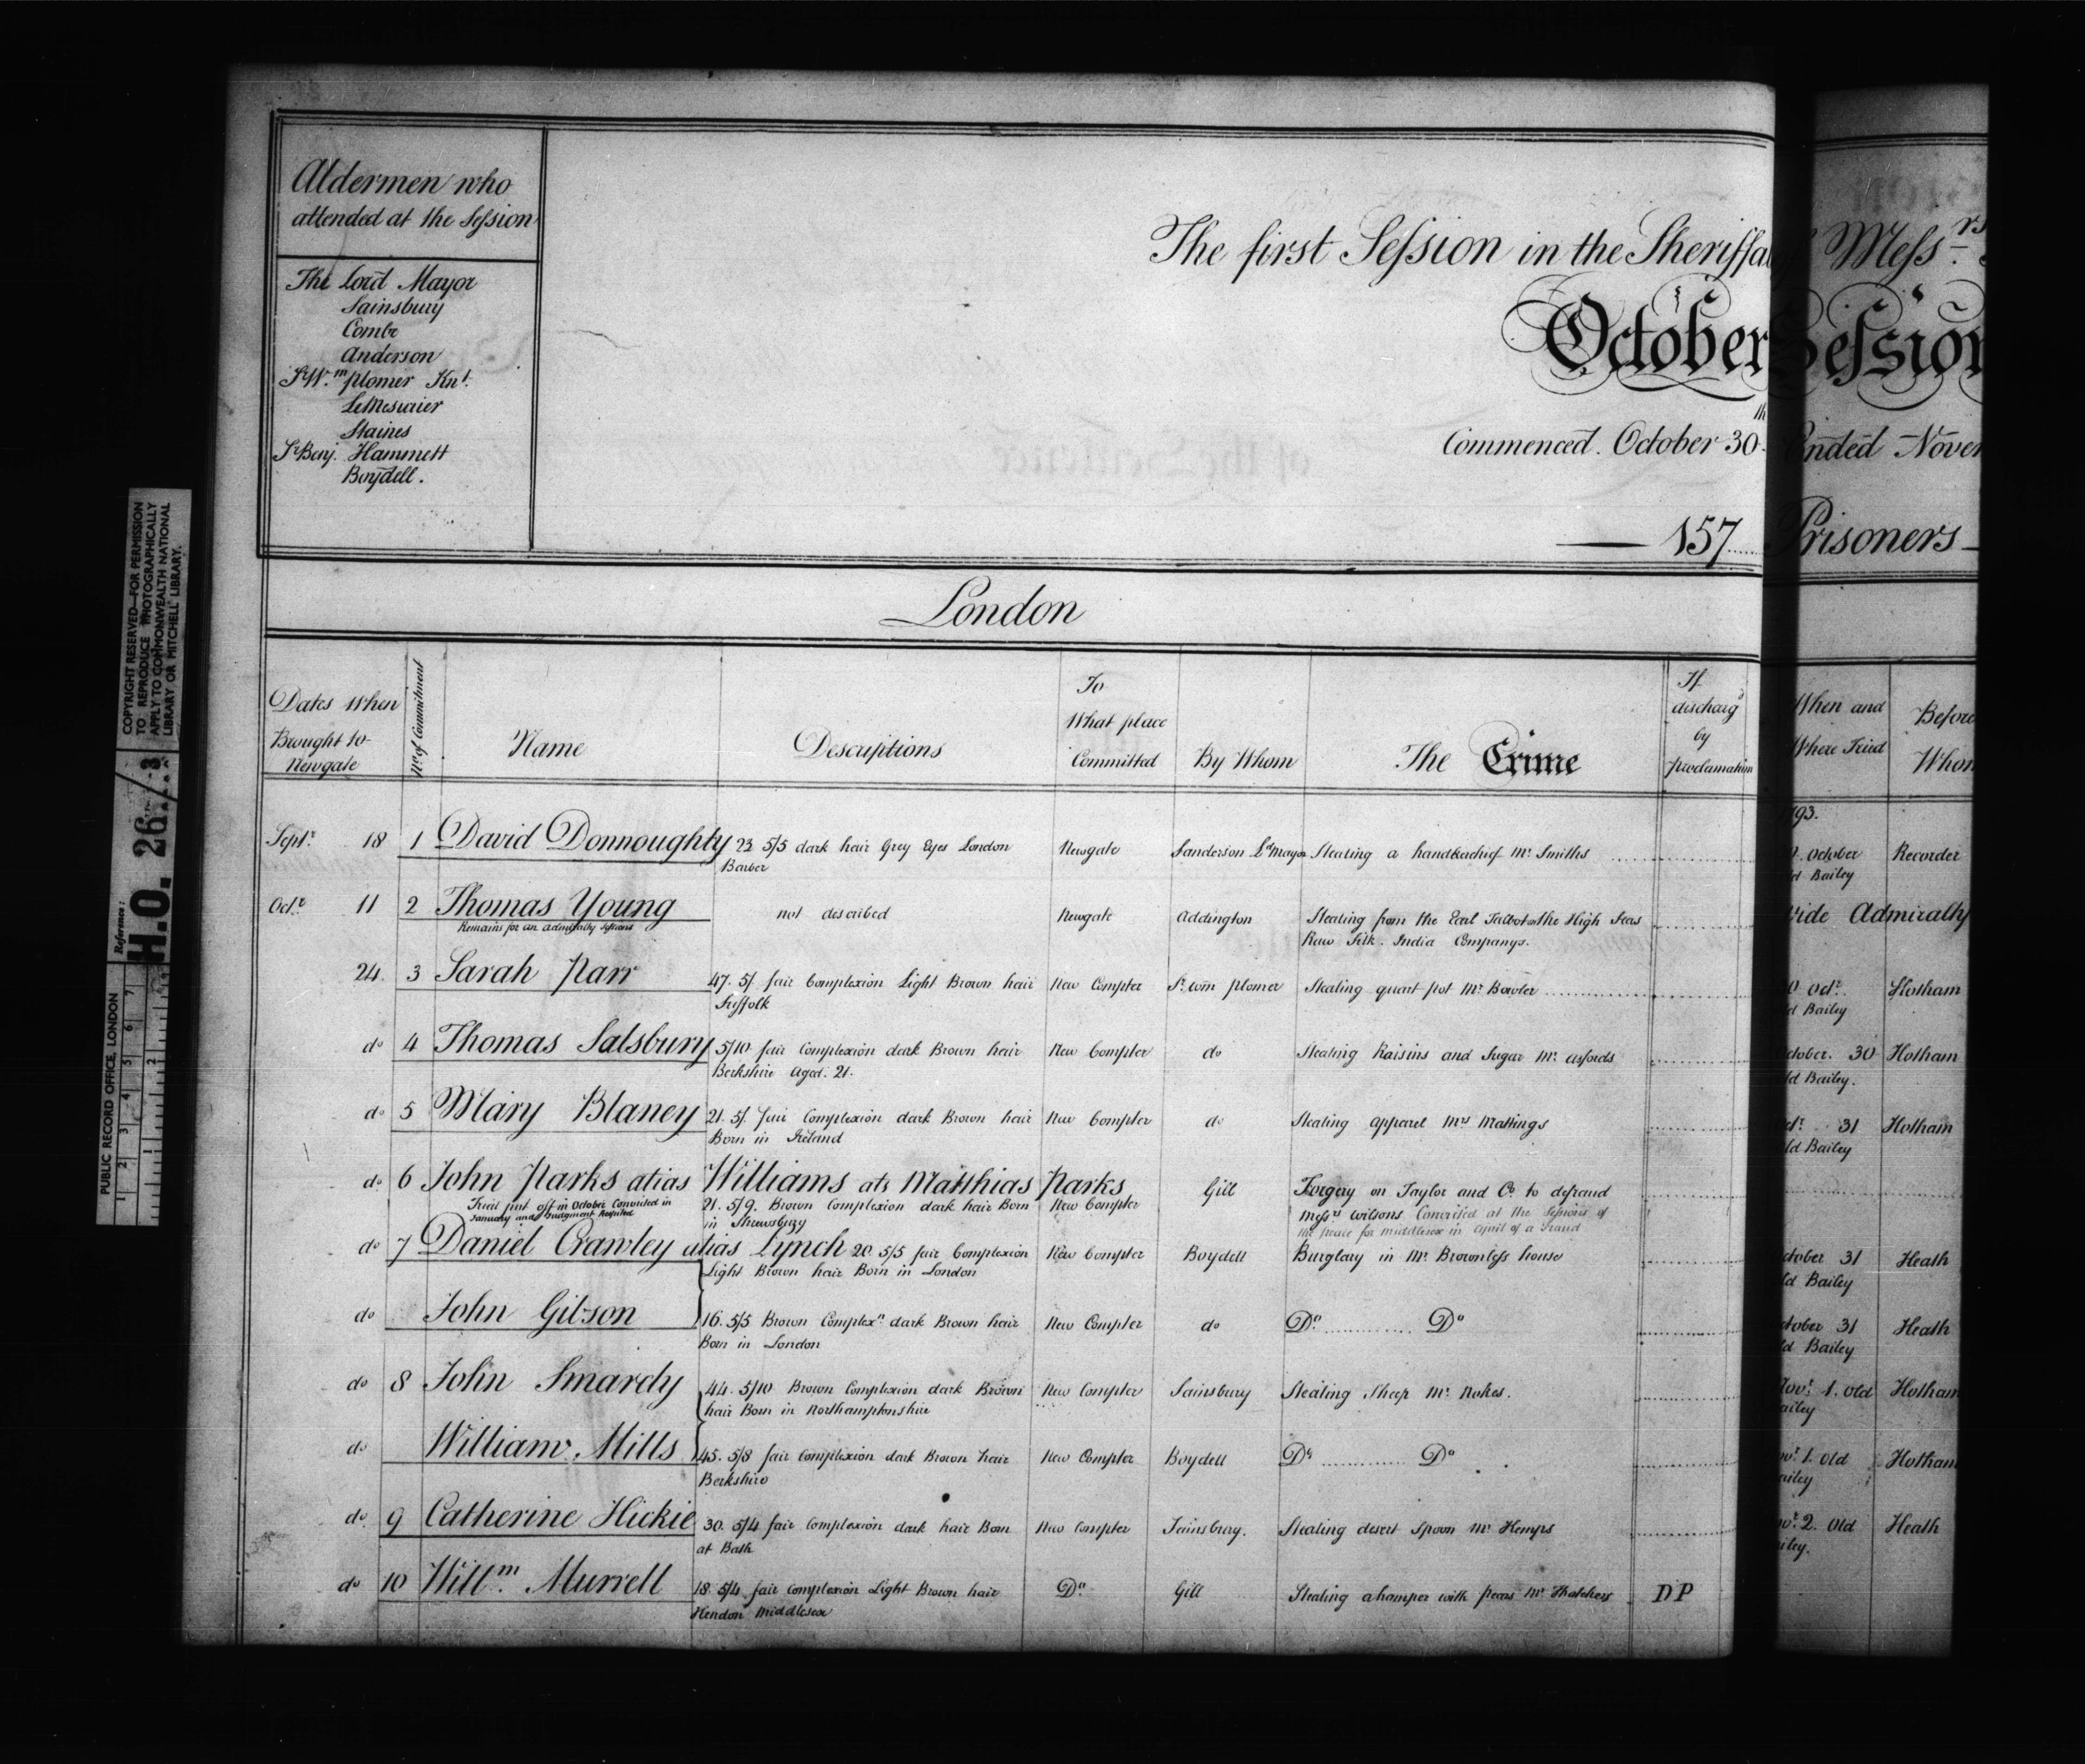 Aldermen who
attended at the Session
The Lord Mayor
Sainsbury
Combe
Anderson
Sr Wm. plomer Knt.
LeMesurier
Staines
Sr Benj. Hammett
Boydell.
The first Session in the Sheriffal Messrs
October Session
Commenced. October 30th Ended Novem
157 Prisoners
London
Dates When Brought to Newgate
No. of Commitment
Name
Descriptions
To What place Committed
By Whom
The Crime
If discharg'd by proclamation
When and Where Tried
Before Whom
1793.
Septr. 18 1 David Donnoughty 23 5/5 dark hair Grey Eyes London Newgate Sanderson Ld Mayor Stealing a handkerchief Mr Smiths October Recorder
Barber ld Bailey
Octr 11 2 Thomas Young not described Newgate Addington Stealing from the Earl Talbot on the High Seas vide Admiralty
Remains for an admiralty sessions Raw Silk. India Companys.
24 3 Sarah Parr 47. 5/. fair Complexion Light Brown hair New Compter Sr. Wm plomer Stealing quart pot Mr Bowler 0 Octr. Hotham
Suffolk ld Bailey
do 4 Thomas Salsbury 5/10 fair Complexion dark Brown hair New Compter do Stealing Raisins and Sugar Mr. Asfords ctober. 30 Hotham
Berkshire Aged. 21. ld Bailey.
do 5 Mary Blaney 21. 5/. fair Complexion dark Brown hair New Compter do Stealing apparel Mrs Mattings ctr. 31 Hotham
Born in Ireland ld Bailey
do 6 John Parks alias Williams als Matthias Parks Gill Forgery on Taylor and Co. to defraud
Trial put off in October Convicted in 21. 5/9. Brown Complexion dark hair Born New Compter Messrs Wilsons Convicted at the Sessions of
January and Judgment Respited in Shrewsbury the peace for Middlesex in April of a Fraud
do 7 Daniel Crawley alias Lynch 20. 5/5 fair Complexion New Compter Boydell Burglary in Mr. Brownless house ctober 31 Heath
Light Brown hair Born in London ld Bailey
do John Gibson 16. 5/5 Brown Complexn dark Brown hair New Compter do Do. Do ctober 31 Heath
Born in London ld Bailey
do 8 John Smardy 44. 5/10 Brown Complexion dark Brown New Compter Sainsbury Stealing Sheep Mr. Nokes. Novr. 1. Old Hotham
hair Born in Northamptonshire ailey
do William Mills 45. 5/8 fair Complexion dark Brown hair New Compter Boydell Do Do ovr. 1. Old Hotham
Berkshire ailey
do 9 Catherine Hickie 30. 5/4 fair Complexion dark hair Born New Compter Sainsbury. Stealing desert Spoon Mr Kemps ovr. 2. Old Heath
at Bath iley.
do 10 Willm. Murrell 18. 5/4 fair Complexion Light Brown hair Do. Gill Stealing a hamper with pears Mr Thatchers DP
Hendon Middlesex
PUBLIC RECORD OFFICE, LONDON
Reference:
H.O. 26/3
COPYRIGHT RESERVED—FOR PERMISSION
TO REPRODUCE PHOTOGRAPHICALLY
APPLY TO COMMONWEALTH NATIONAL
LIBRARY OR MITCHELL LIBRARY.
1 2 3 4 5 6 7
1 2